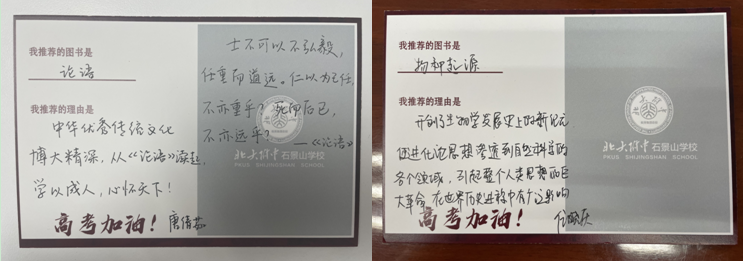 我推荐的图书是
论语
我推荐的理由是
中华优秀传统文化
博大精深，从《论语》读起，
学以成人，心怀天下！
高考加油！
唐倩茹
士不可以不弘毅，
任重而道远。仁以为己任，
不亦重乎？死而后已，
不亦远乎？
——《论语》
北大附中石景山学校
PKUS SHIJINGSHAN SCHOOL
我推荐的图书是
物种起源
我推荐的理由是
开创了生物学发展史上的新纪元
使进化论思想渗透到自然科学的
各个领域，引起整个人类思想的巨
大革命，在世界历史进程中有广泛影响
高考加油！
北大附中石景山学校
PKUS SHIJINGSHAN SCHOOL